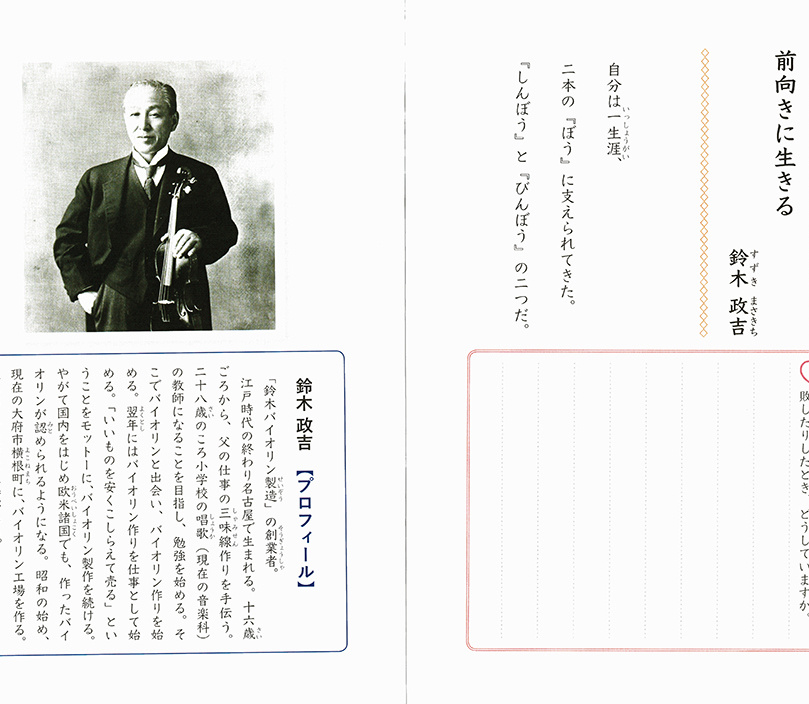 前向きに生きる
鈴木 政吉
すずき まさきち
自分は一生涯、
いっしょうがい
二本の『ぼう』に支えられてきた。
『しんぼう』と『びんぼう』の二つだ。
敗したりしたとき、どうしていますか。
鈴木 政吉 【プロフィール】
「鈴木バイオリン製造」の創業者。
せいぞう そうぎょうしゃ
江戸時代の終わり名古屋で生まれる。十六歳
さい
ごろから、父の仕事の三味線作りを手伝う。
しゃみせん
二十八歳のころ小学校の唱歌(現在の音楽科)
さい しょうか
の教師になることを目指し、勉強を始める。そ
こでバイオリンと出会い、バイオリン作りを始
める。翌年にはバイオリン作りを仕事として始
よくとし
める。「いいものを安くこしらえて売る」とい
うことをモットーに、バイオリン製作を続ける。
やがて国内をはじめ欧米諸国でも、作ったバイ
おうべいしょこく
オリンが認められるようになる。昭和の始め、
みと
現在の大府市横根町に、バイオリン工場を作る。
よこねまち